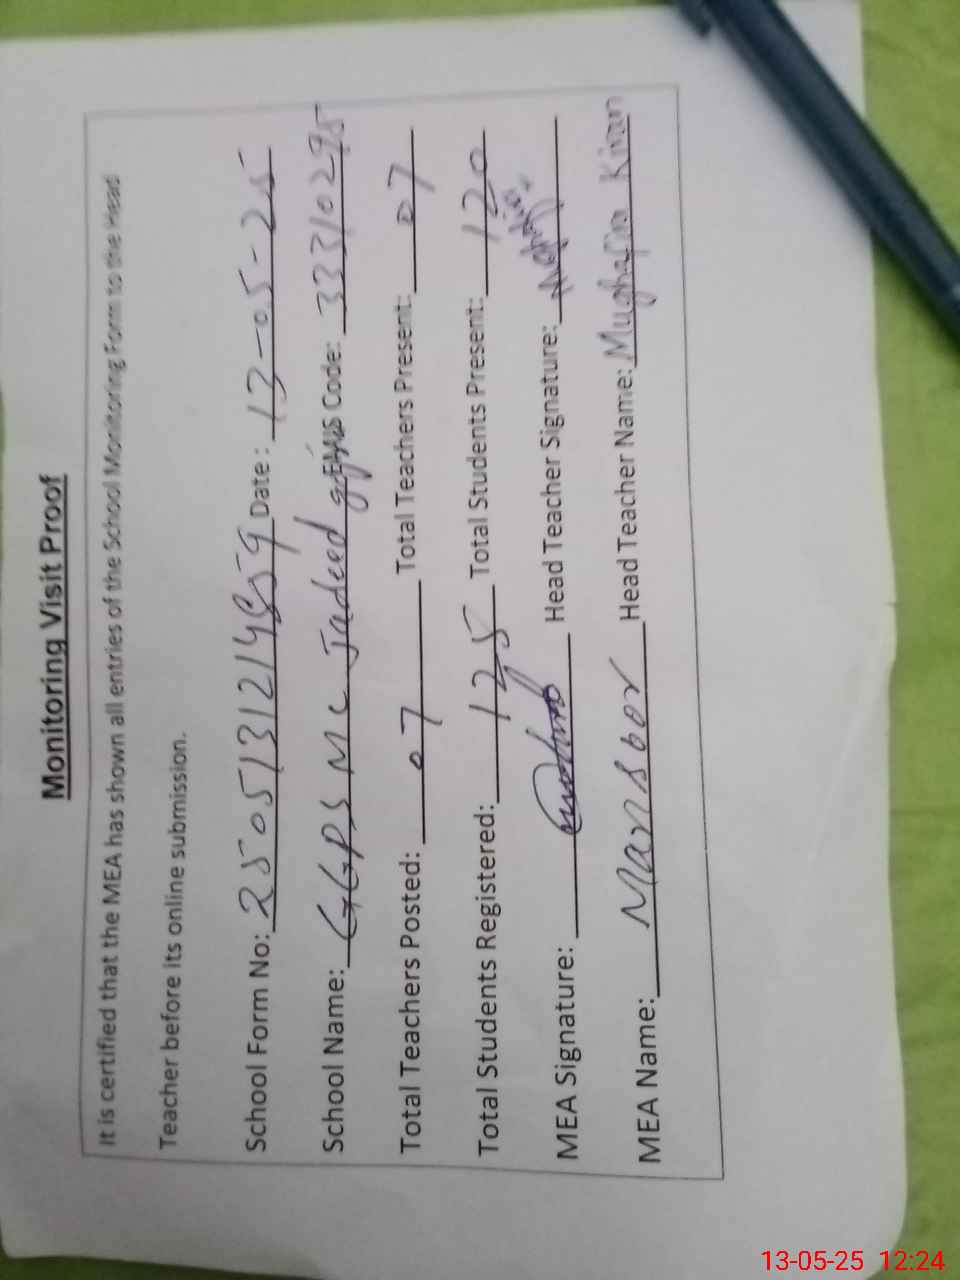 Monitoring Visit Proof
It is certified that the MEA has shown all entries of the School Monitoring Form to the Head
Teacher before its online submission.
School Form No: 2505131214859 Date: 13-05-25
School Name: GGPS MC Jadeed EMIS Code: 33310295
Total Teachers Posted: 07 Total Teachers Present: 07
Total Students Registered: 125 Total Students Present: 120
MEA Signature: Head Teacher Signature:
MEA Name: Mansoor Head Teacher Name: Mughafira Kiran
13-05-25 12:24